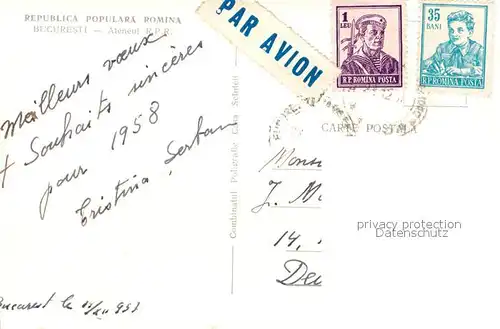 REPUBLICA POPULARĂ ROMÎNA
BUCUREȘTI — Ateneul R.P.R.
PAR AVION
1
LEU
R.P. ROMINA POSTA
35
BANI
R.P. ROMINA POSTA
Meilleurs vœux
+ Souhaits sincères
pour 1958
Cristina, Serban
Bucarest le
Combinatul Poligrafic Casa Scînteii
CARTE POSTALĂ
Mons
J. M
14,
De
privacy protection
Datenschutz